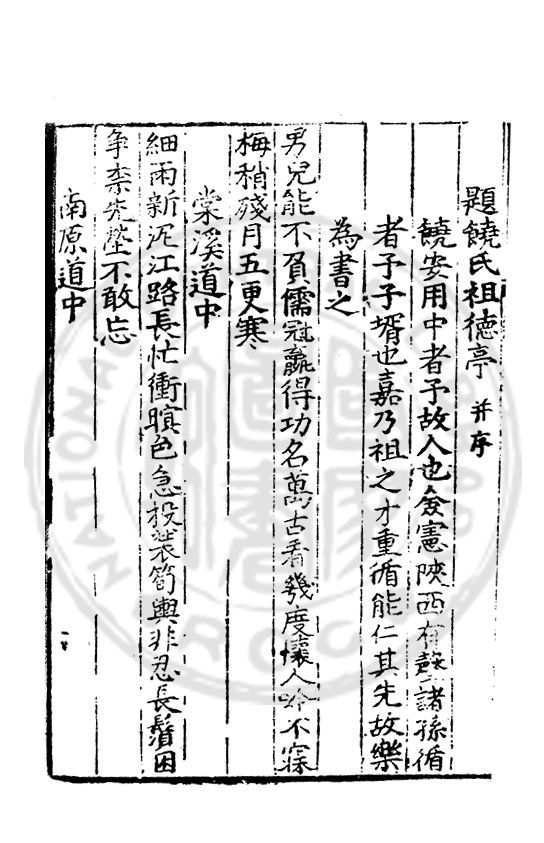 題饒氏祖德亭 并序
饒安用中者予故人也僉憲陝西有聲諸孫循
者予子壻也嘉乃祖之才重循能仁其先故樂
為書之
男兒能不負儒冠贏得功名萬古看幾度懷人吟不寐
梅稍殘月五更寒
棠溪道中
細雨新泥江路長忙衝暝色急投裝筍輿非忍長鬚困
爭柰先塋不敢忘
南原道中